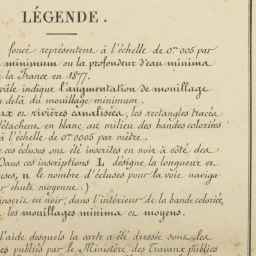 LÉGENDE.
foncé représentent à l'échelle de 0m005 par
minimum ou la profondeur d'eau minima
la France en 1877.
indique l'augmentation de mouillage
delà du mouillage minimum.
ou rivières canalisées, les rectangles tracés
détachent en blanc au milieu des bandes colorées
à l'échelle de 0m0005 par mètre.
ces écluses ont été inscrites en noir à côté des
Dans ces inscriptions L désigne la longueur en
n le nombre d'écluses pour la voie naviga
chute moyenne.)
inscrit en noir, dans l'intérieur de la bande coloriée,
les mouillages minima et moyens.
l'aide desquels la carte a été dressée sont les
publiés par le Ministère des Travaux publics